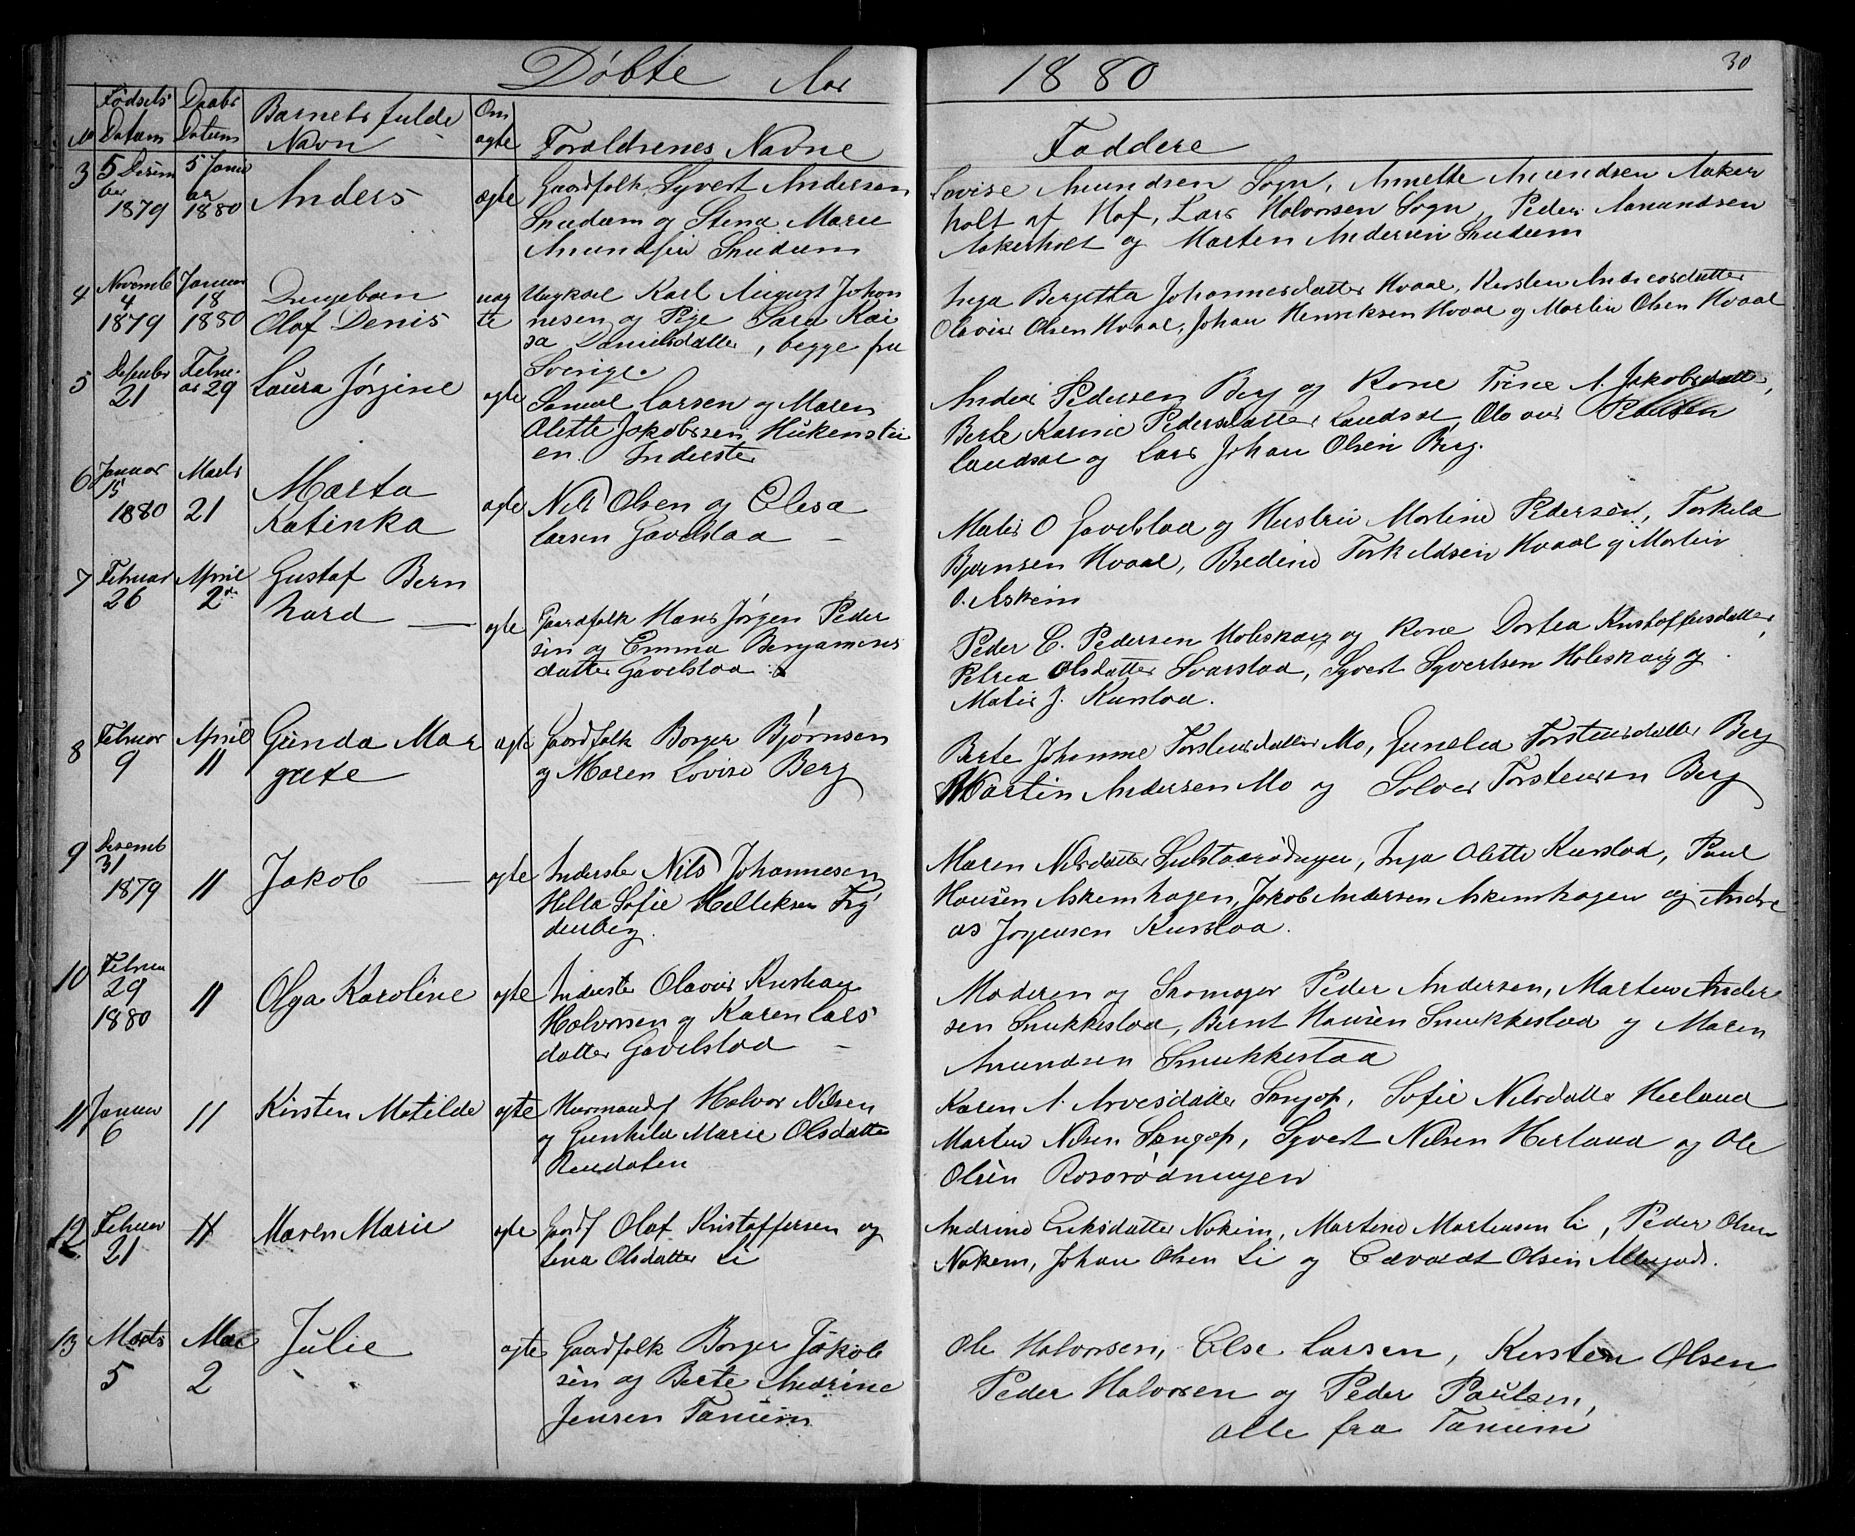 Döbte Aar 1880
30
No
Fødsels Datum
Daabs Datum
Barnets fulde Navn
Om ægte
Foraldrenes Navne
Faddere
3
5 Desem
ber
1879
5 Janu
ar
1880
Anders
ægte
Gaardfolk Syvert Andersen
Snedum og Stena Marie
Amundsen Snedum
Lovise Amundsen Sogn, Annette Amundsen Aaker
holt af Hof, Lars Halvorsen Sogn, Peder Amundsen
Aakerholt og Marten Andersen Snedum
4
Novemb
4
1879
Januar
18
1880
Drengebarn
Olaf Denis
uæg
te
Ungkarl Karl August Johan
nesen og Pige Sara Kai
sa Danielsdatter, begge fra
Sverige.
Inga Bergitta Johannesdatter Hvaal, Kirsten Andreasdatter
Olavus Olsen Hvaal, Johan Henriksen Hvaal og Martin Olsen Hvaal
5
21
Febru
ar 29
Laura Jørgine
ægte
Samuel Larsen og Maren
Olette Jakobsen Hukenstei
en. Inderster
Anders Pedersen Berg og Kone Trine A. Jakobsdatter,
Berte Karine Pedersdatter Landsal, Olavus Paulsen
Landsal og Lars Johan Olsen Berg.
6
Januar
15
1880
Marts
21
Marta
Katinka
ægte
Nils Olsen og Elesa
Larsen Gavelstad –
Matis O Gavelstad og Hustru Martine Pedersen, Torkild
Bjørnsen Hvaal, Bredine Torkildsen Hvaal og Martin
O. Askeim
7
Februar
26
April
2
Gustaf Bern
hard —
ægte
Gaardfolk Hans Jørgen Peder
sen og Emma Benjamins
datter Gavelstad
Peder C. Pedersen Holeskaug og Kone Dortea Kristoffersdatter,
Petrea Olsdatter Svarstad, Syvert Syvertsen Holeskaug og
Matis J. Kurstad.
8
Februar
9
April
11
Gunda Mar
grete
ægte
Gaardfolk Borger Bjørnsen
og Maren Lovise Berg
Berte Johanne Torstensdatter Mo, Gunelia Torstensdatter Berg
Martin Andersen Mo og Solver Torstensen Berg
9
Desemb
31
1879
11
Jakob —
ægte
Inderster Nils Johannesen
Hella Sofie Melleksen Fry
denberg.
Maren Nilsdatter Gulstadrødningen, Inga Olette Kurstad, Paul
Hansen Askemhagen, Jakob Andersen Askemhagen og Andre
as Jørgensen Kurstad.
10
Februa
29
1880
11
Olga Karoline
ægte
Inderster Olavus
Halvorsen og Karen Lars
datter Gavelstad –
Moderen og Skomager Peder Andersen, Martin Ander
sen Snukkestad, Bernt Hansen Snukkestad og Maren
Amundsen Snukkestad
11
Januar
6
11
Kirsten Matilde
ægte
Husmandsf Halvor Nilsen
og Gunhild Marie Olsdatter
Rendalen
Karen A. Arvesdatter, Sofie Nilsdatter Herland
Martin Nilsen, Syvert Nilsen Herland og Ole
Olsen Rosorødningen
12
Februar
21
11
Maren Marie
ægte
Gaardf Olaf Kristoffersen og
Lena Olsdatter Li
Andrine Eriksdatter Nakim, Martine Martensen Li, Peder Olsen
Nakem, Johan Olsen Li og Edvardt Olsen
13
Marts
5
Mai
2
Julie
ægte
Gaardfolk Borger Jakob
sen og Berte Andrine
Jensen Tanum
Ole Halvorsen, Else Larsen, Kirsten Olsen
Peder Halvorsen og Peder Paulsen,
alle fra Tanum